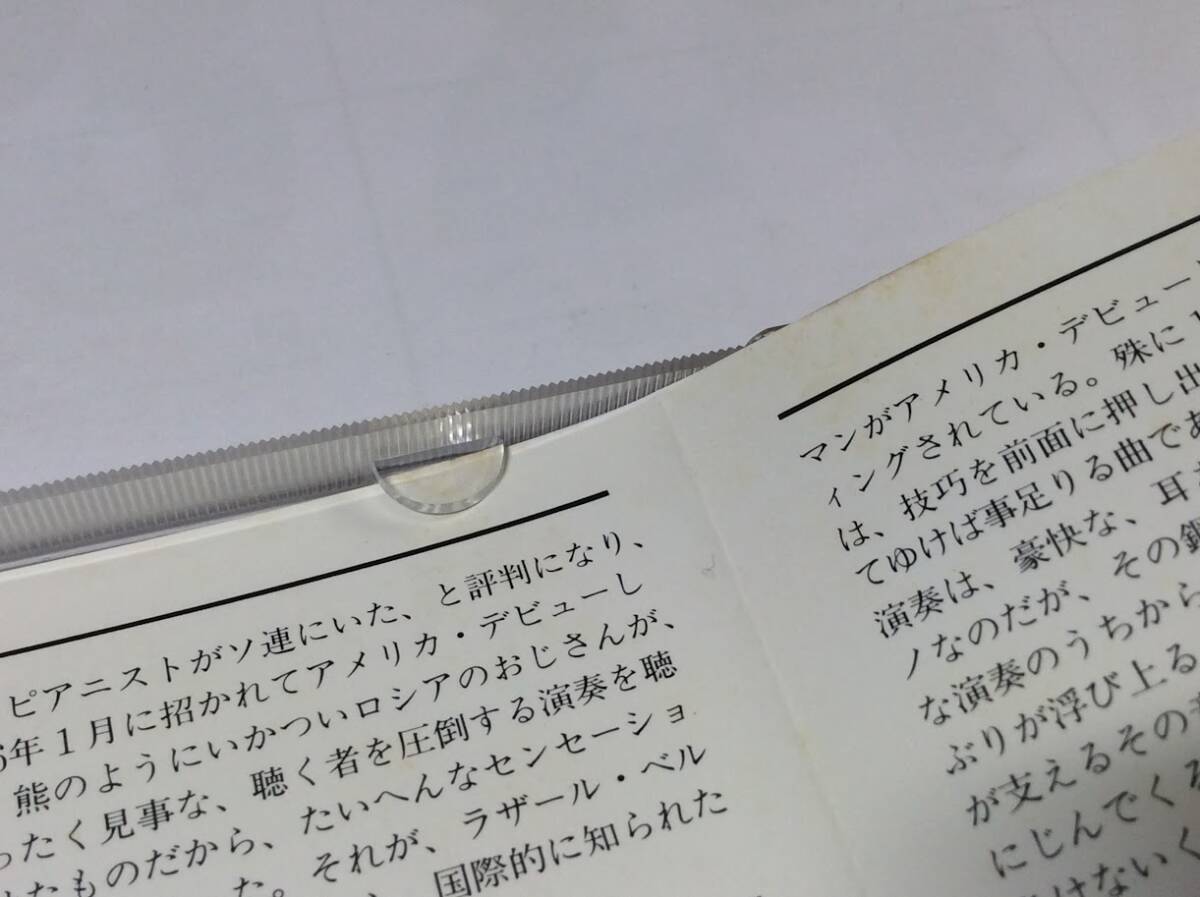 ピアニストがソ連にいた、と評判になり、
6年1月に招かれてアメリカ・デビューし
熊のようにいかついロシアのおじさんが、
ったく見事な、聴く者を圧倒する演奏を聴
たものだから、たいへんなセンセーショ
た。それが、ラザール・ベル
国際的に知られた
マンがアメリカ・デビュー
ィングされている。殊に1
は、技巧を前面に押し出
てゆけば事足りる曲であ
演奏は、豪快な、耳
ノなのだが、その鋼
な演奏のうちから
ぶりが浮び上る
が支えるその
にじんでくる
けないく